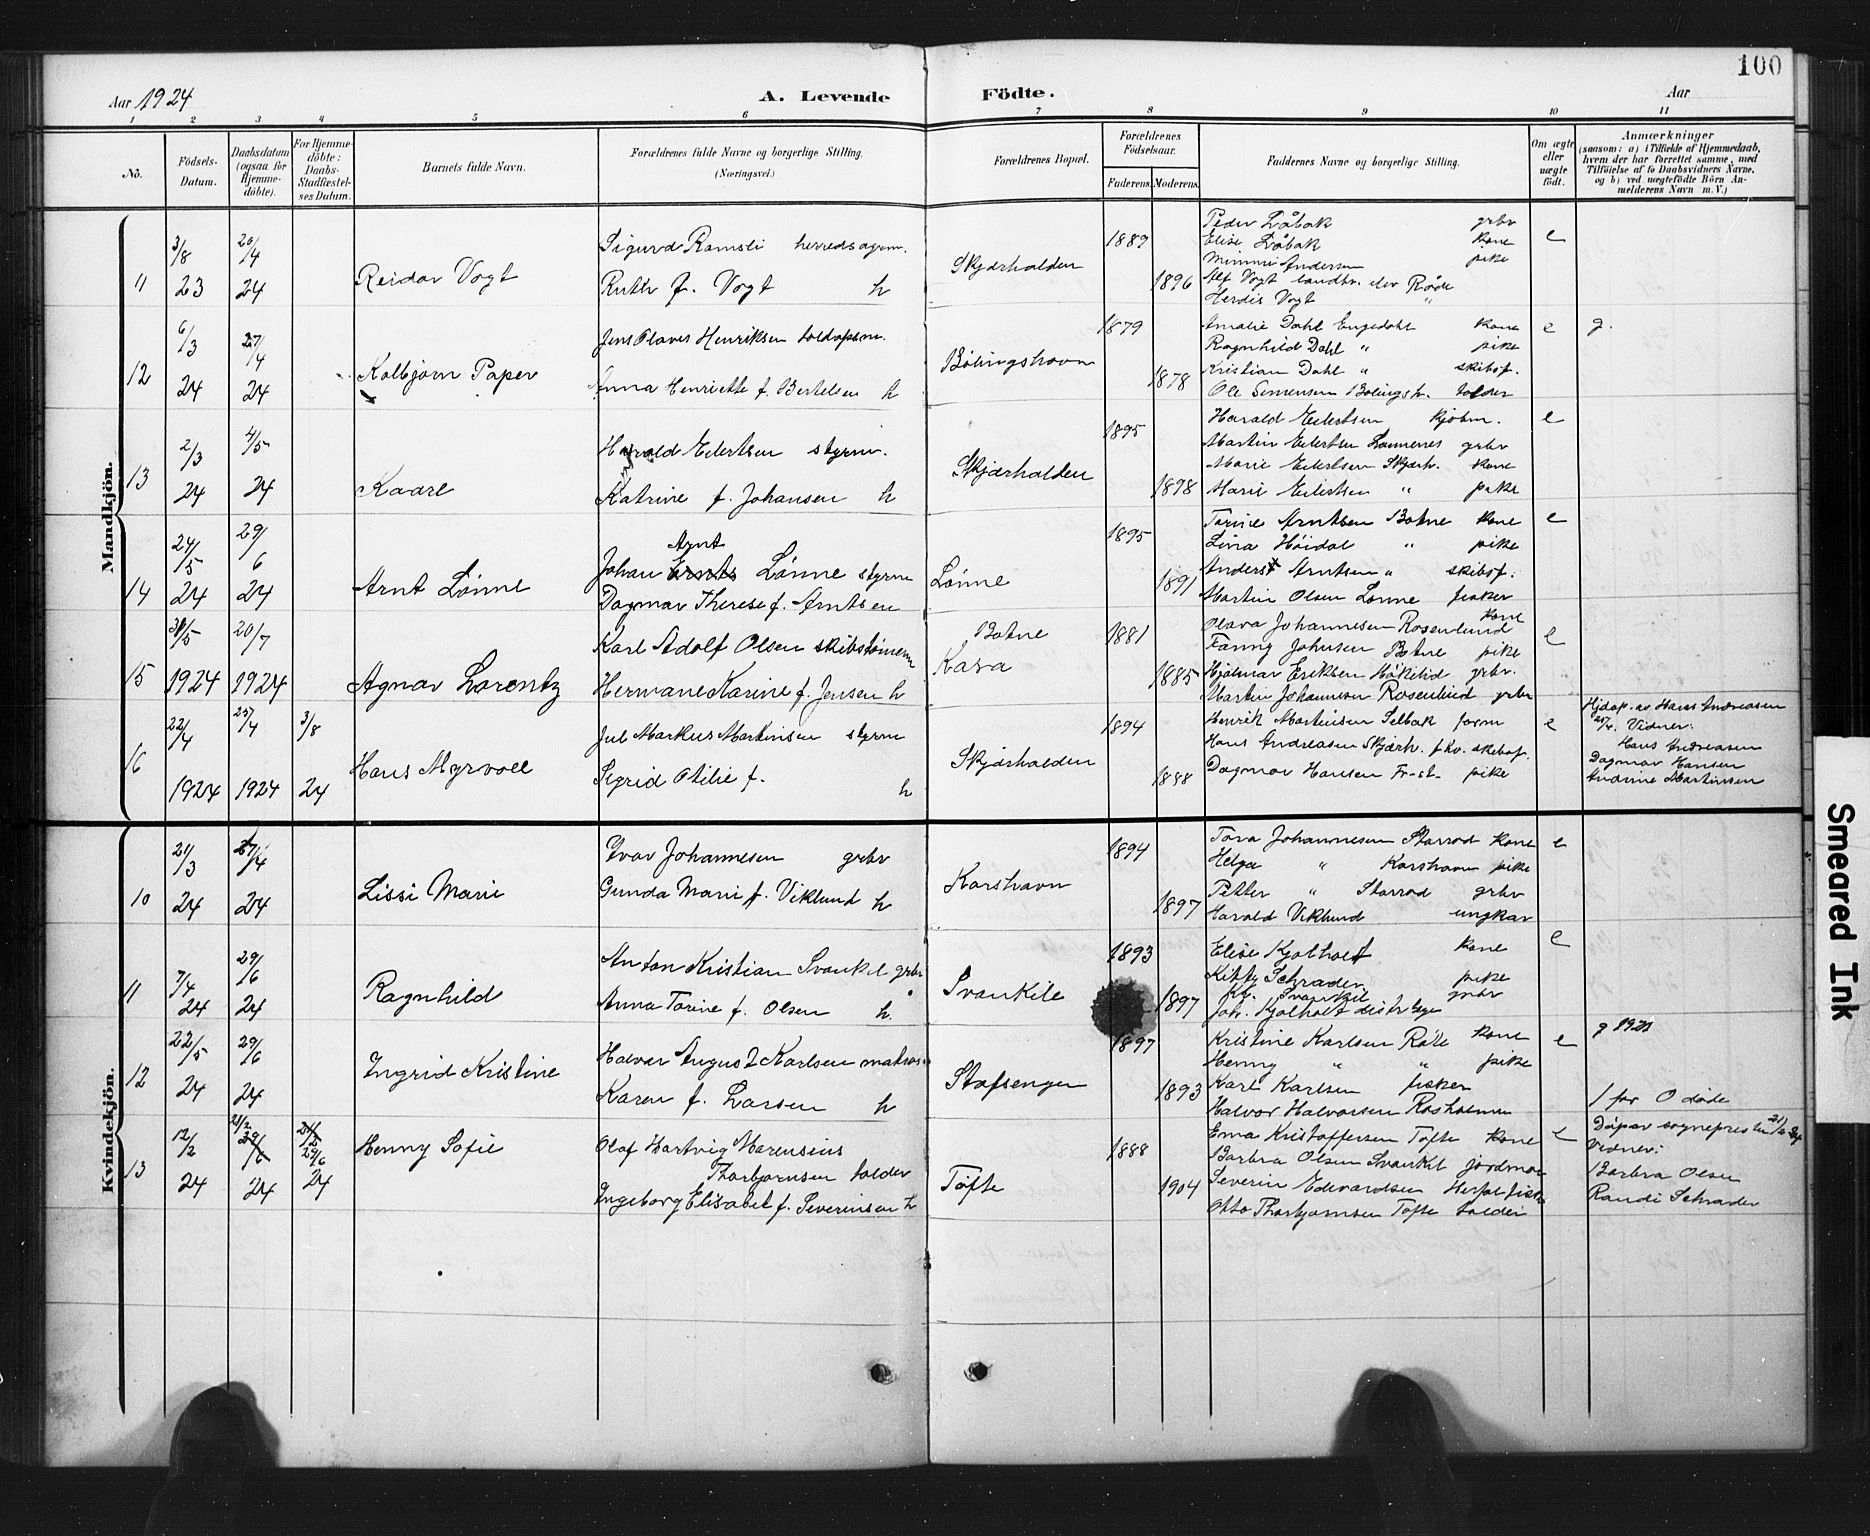 100
Aar 1924
A. Levende Födte.
Aar
1 2 3 4 5 6 7 8 9 10 11
No.
Födsels-Datum.
Daabsdatum (ogsaa for Hjemme-döbte).
For Hjemme-döbte: Daabs-Stadfæstel-ses Datum.
Barnets fulde Navn.
Forældrenes fulde Navne og borgerlige Stilling.
(Næringsvei.)
Forældrenes Bopæl.
Forældrenes Födselsaar.
Faderens. Moderens.
Faddernes Navne og borgerlige Stilling.
Om ægte eller uægte födt.
Anmærkninger
(saasom: a) i Tilfælde af Hjemmedaab,
hvem der har forrettet samme, med
Tilföielse af to Daabsvidners Navne,
og b) ved uægtefödte Börn An-
melderens Navn m. V.)
Mandkjön.
11 3/8 23 20/4 24 Reidar Vogt
Sigurd Ramsli herredsagron.
Ruth f. Vogt h
Skjærhalden 1889 1896
Peder Låbak grbr
Elise Låbak kone
Mimmi Andersen pike
Alf Vogt landbr. elev Råde
Herdis Vogt "
e
12 6/3 24 27/4 24 Kolbjørn Paper
Jens Olaves Henriksen toldopsm.
Anna Henriette f. Bertelsen h
Bølingshavn 1879 1878
Amalie Dahl Engedahl kone
Ragnhild Dahl " pike
Kristian Dahl " skibsf.
Ole Simensen Bølingsh. tolder
e g.
13 2/3 24 4/5 24 Kaare
Harald Eilertsen styrm.
Katrine f. Johansen h
Skjærhalden 1895 1898
Harald Eilertsen kjøbm.
Martin Eilertsen Lammenes grbr
Marie Eilertsen Skjærh. kone
Marie Eilertsen " pike
e
14 24/5 24 29/6 24 Arnt Lønne
Arnt
Johan Lønne styrm
Dagmar Therese f. Arntsen
Lønne 1895 1891
Torine Arntsen Botne kone
Lina Høidal " pike
Anders Arntsen " skibsf.
Martin Olsen Lønne fisker
e
15 31/5 1924 20/7 1924 Agnar Lorentz
Karl Adolf Olsen skibstømerm
Hermane Karine f. Jensen h
Botne
Kasa 1881 1885
Olava Johannesen Rosenlund kone
Fanny Johnsen Botne pike
Hjalmar Eriksen Høkelid grbr.
Martin Johannesen Rosenlund grbr
e
16 22/4 1924 25/4 1924 3/8 24 Hans Myrvoll
Jul Markus Martinsen styrm
Sigrid Otilie f. h
Skjærhalden 1894 1888
Henrik Martinsen Selbak form
Hans Andreasen Skjærh. fhv. skibsf.
Dagmar Hansen Fr-st. pike
e
Hjdøp. av Hans Andreasen
25/4. Vidner:
Hans Andreasen
Dagmar Hansen
Andrine Martinsen
Kvindekjön.
10 21/3 24 27/4 24 Lissi Marie
Ivar Johannesen grbr
Gunda Marie f. Viklund h
Korshavn 1894 1897
Tora Johannesen Storrød kone
Helga " Korshavn pike
Petter " Storrød grbr
Harald Viklund ungkar
e
11 7/4 24 29/6 24 Ragnhild
Anton Kristian Svankil grbr
Anna Torine f. Olsen h.
Svankile 1893 1897
Elise Kjølholt kone
Kitty Schrader pike
Kr. Svankil grbr
Joh. Kjølholt distr. læge
e
12 22/5 24 29/6 24 Ingrid Kristine
Halvar August Karlsen matros
Karen f. Larsen h
Stafsengen 1897 1893
Kristine Karlsen Rød kone
Henny " " pike
Karl Karlsen fisker
Halvor Halvorsen Rosholmen
e
g 1921
1 før 0 døde
13 12/2 24 21/2 29/6 24 21/2 29/6 24 Henny Sofie
Olaf Hartvig Marensius
Thorbjørnsen tolder
Ingeborg Elisabet f. Severinsen h
Tofte 1888 1904
Ema Kristoffersen Tofte kone
Barbra Olsen Svankil jordmor
Severin Edvardsen Herføl fisk
Otto Thorbjørnsen Tofte tolder
e
Døp av sognepresten 21/2 24
Vidner:
Barbra Olsen
Randi Schrader
Smeared Ink